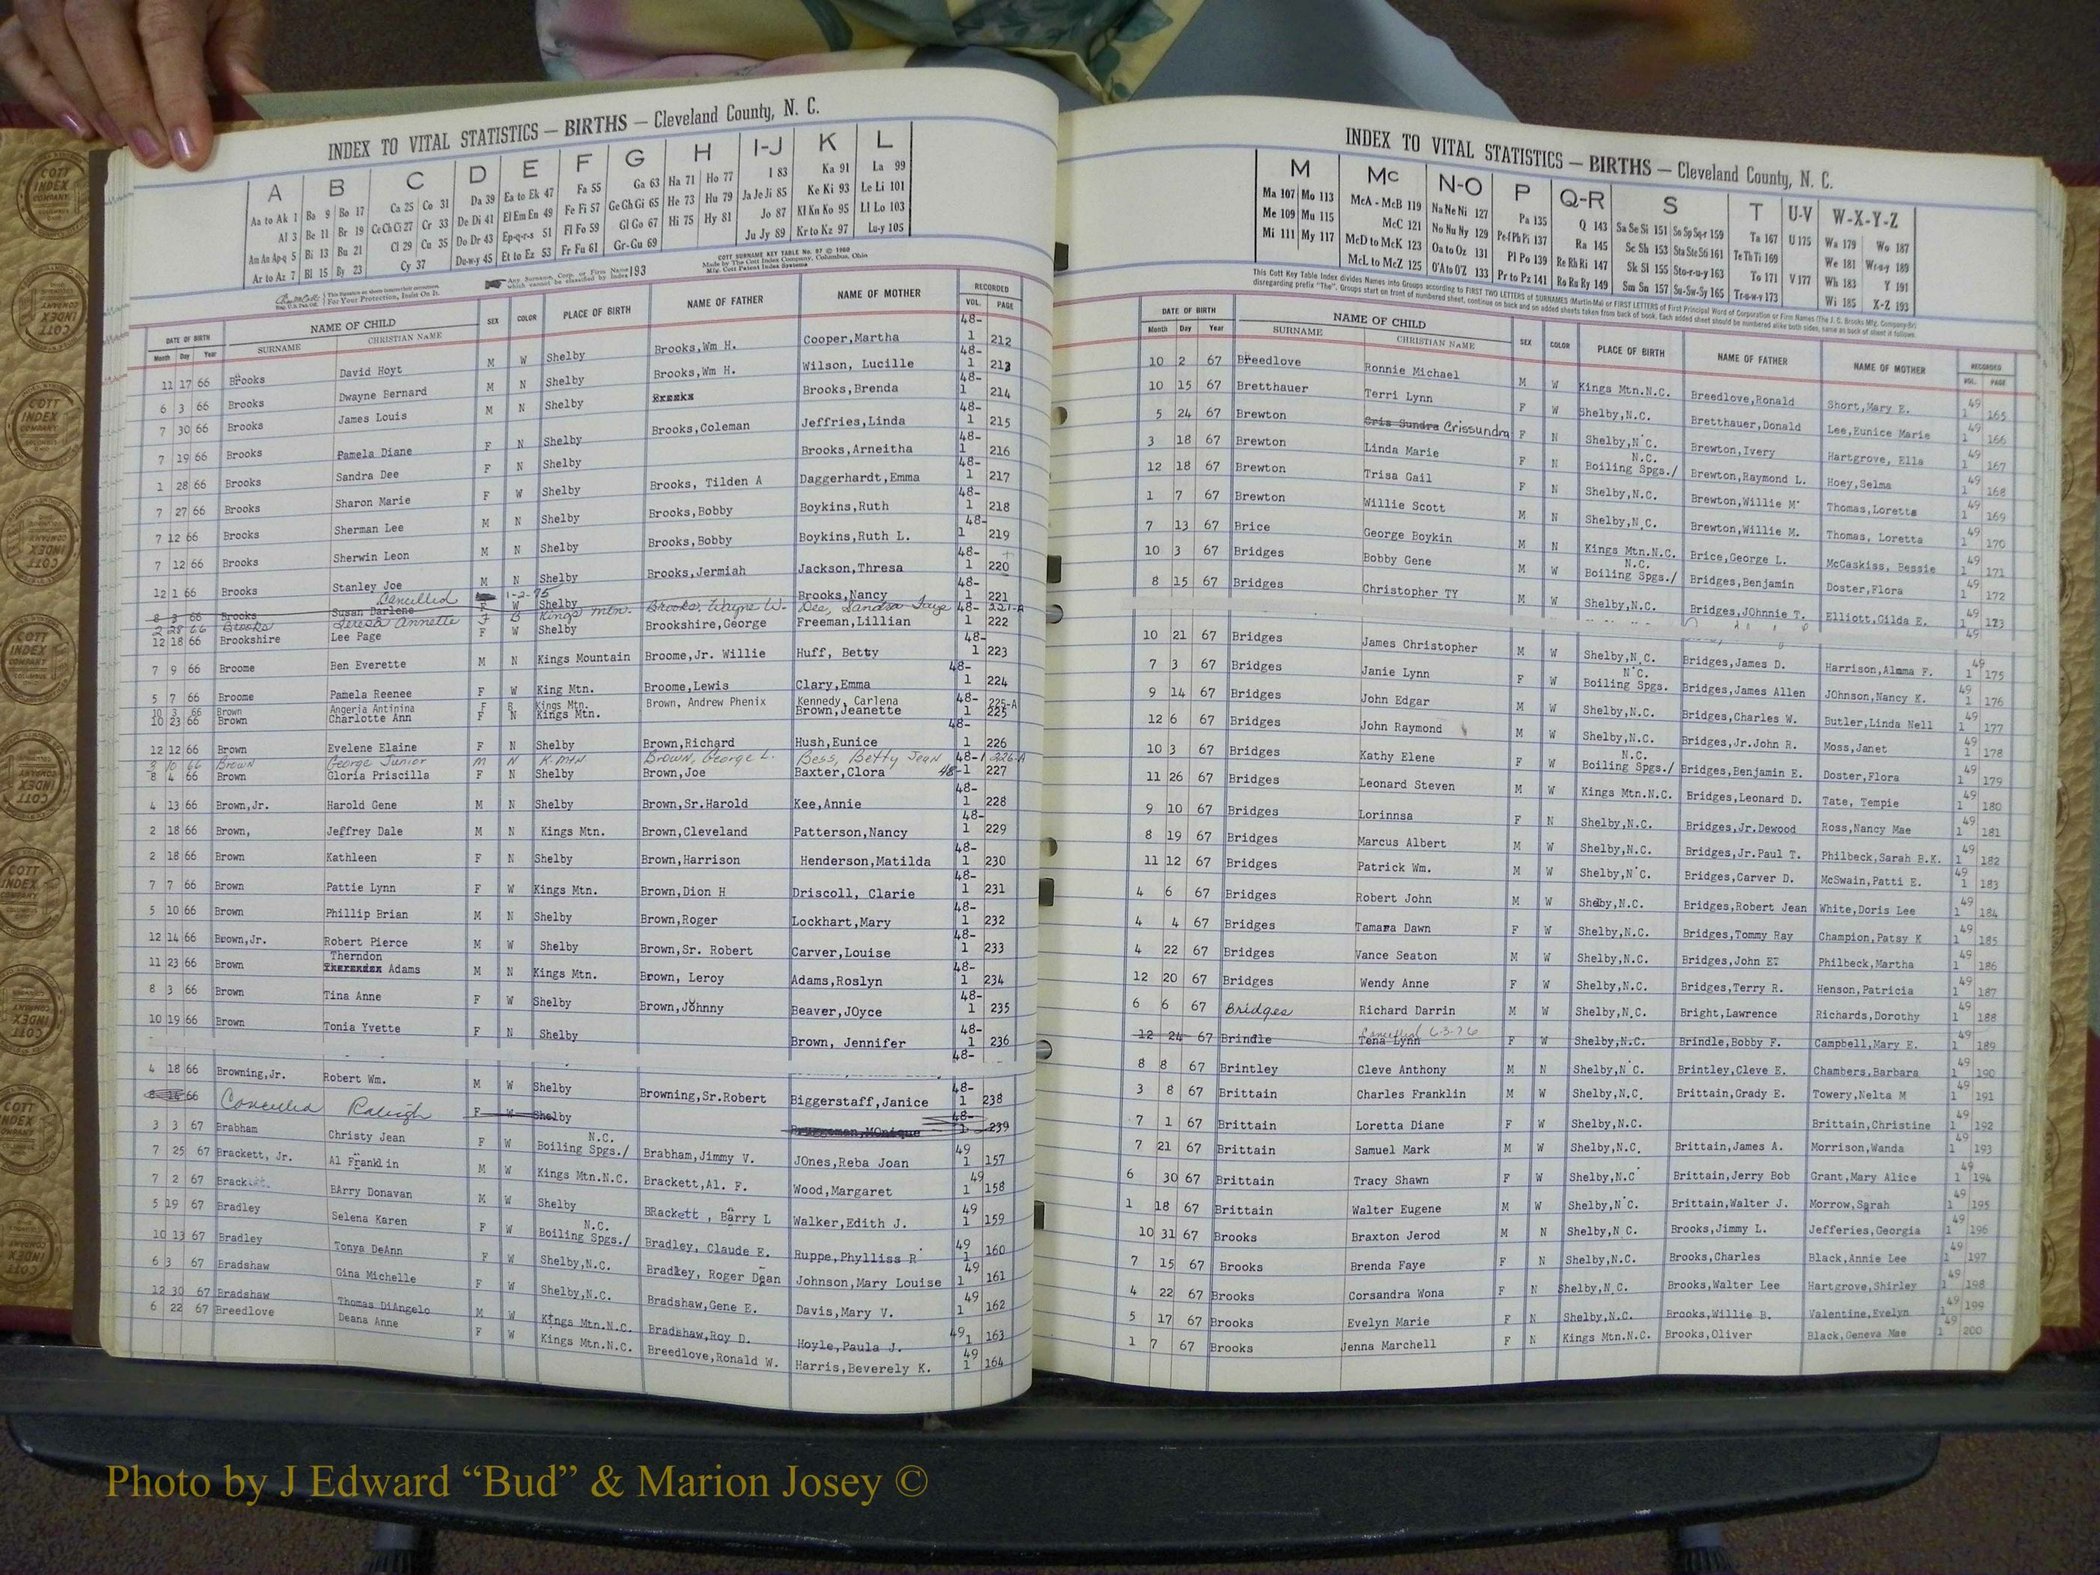 INDEX TO VITAL STATISTICS — BIRTHS — Cleveland County, N. C.
A B C D E F G H I-J K L
Aa to Ak 1 Ba 9 Bo 17 Ca 25 Co 31 Da 39 Ea to Ek 47 Fa 55 Ga 63 Ha 71 Ho 77 I 83 Ka 91 La 99
Al 3 Be 11 Br 19 Ce Ch Ci 27 Cr 33 De Di 41 El Em En 49 Fe Fi 57 Ge Gh Gi 65 He 73 Hu 79 Ja Je Ji 85 Ke Ki 93 Le Li 101
Am An Ap-q 5 Bi 13 Bu 21 Cl 29 Cu 35 Do Dr 43 Ep-q-r-s 51 Fl Fo 59 Gl Go 67 Hi 75 Hy 81 Jo 87 Kl Kn Ko 95 Ll Lo 103
Ar to Az 7 Bl 15 By 23 Cy 37 Du-w-y 45 Et to Ez 53 Fr Fu 61 Gr-Gu 69 Ju Jy 89 Kr to Kz 97 Lu-y 105
COTT SURNAME KEY TABLE No. 97 © 1960
Made by The Cott Index Company, Columbus, Ohio
Any Surname, Corp. or Firm Name which cannot be classified by Index 193
For Your Protection, Insist On It.
DATE OF BIRTH NAME OF CHILD SEX COLOR PLACE OF BIRTH NAME OF FATHER NAME OF MOTHER RECORDED
Month Day Year SURNAME CHRISTIAN NAME VOL. PAGE
11 17 66 Brooks David Hoyt M W Shelby Brooks,Wm H. Cooper,Martha 48-1 212
6 3 66 Brooks Dwayne Bernard M N Shelby Brooks,Wm H. Wilson, Lucille 48-1 213
7 30 66 Brooks James Louis M N Shelby Brooks,Brenda 48-1 214
7 19 66 Brooks Pamela Diane F N Shelby Brooks,Coleman Jeffries,Linda 48-1 215
1 28 66 Brooks Sandra Dee F N Shelby Brooks,Arneitha 48-1 216
7 27 66 Brooks Sharon Marie F W Shelby Brooks, Tilden A Daggerhardt,Emma 48-1 217
7 12 66 Brooks Sherman Lee M N Shelby Brooks,Bobby Boykins,Ruth 48-1 218
7 12 66 Brooks Sherwin Leon M N Shelby Brooks,Bobby Boykins,Ruth L. 48-1 219
12 1 66 Brooks Stanley Joe M N Shelby Brooks,Jermiah Jackson,Thresa 48-1 220
8 3 66 Brooks Susan Darlene Cancelled 1-2-75 F W Shelby Brooks,Nancy 48-1 221
2 28 66 Brooks Teresa Annette F B Kings Mtn. Brooks, Wayne W. Dee, Sandra Faye 48- 221-A
12 18 66 Brookshire Lee Page F W Shelby Brookshire,George Freeman,Lillian 1 222
7 9 66 Broome Ben Everette M N Kings Mountain Broome,Jr. Willie Huff, Betty 48-1 223
5 7 66 Broome Pamela Reenee F W King Mtn. Broome,Lewis Clary,Emma 48-1 224
10 3 66 Brown Angeria Antinina F B Kings Mtn. Brown, Andrew Phenix Kennedy, Carlena 48- 225-A
10 23 66 Brown Charlotte Ann F N Kings Mtn. Brown,Jeanette 1 225
12 12 66 Brown Evelene Elaine F N Shelby Brown,Richard Hush,Eunice 48-1 226
3 10 66 Brown George Junior M N K.Mtn Brown, George L. Bess, Betty Jean 48-1 226-A
8 4 66 Brown Gloria Priscilla F N Shelby Brown,Joe Baxter,Clora 48-1 227
4 13 66 Brown,Jr. Harold Gene M N Shelby Brown,Sr.Harold Kee,Annie 48-1 228
2 18 66 Brown, Jeffrey Dale M N Kings Mtn. Brown,Cleveland Patterson,Nancy 48-1 229
2 18 66 Brown Kathleen F N Shelby Brown,Harrison Henderson,Matilda 48-1 230
7 7 66 Brown Pattie Lynn F W Kings Mtn. Brown,Dion H Driscoll, Clarie 48-1 231
5 10 66 Brown Phillip Brian M N Shelby Brown,Roger Lockhart,Mary 48-1 232
12 14 66 Brown,Jr. Robert Pierce M W Shelby Brown,Sr. Robert Carver,Louise 48-1 233
11 23 66 Brown Therndon Adams M N Kings Mtn. Brown, Leroy Adams,Roslyn 48-1 234
8 3 66 Brown Tina Anne F W Shelby Brown,Johnny Beaver,JOyce 48-1 235
10 19 66 Brown Tonia Yvette F N Shelby Brown, Jennifer 48-1 236
48-
4 18 66 Browning,Jr. Robert Wm. M W Shelby Browning,Sr.Robert Biggerstaff,Janice 48-1 238
66 Cancelled Raleigh F W Shelby Bruggeman,MOnique 48-1 239
3 3 67 Brabham Christy Jean F W N.C. Boiling Spgs./ Brabham,Jimmy V. JOnes,Reba Joan 49 1 157
7 25 67 Brackett, Jr. Al Franklin M W Kings Mtn.N.C. Brackett,Al. F. Wood,Margaret 49 1 158
7 2 67 Brackett BArry Donavan M W Shelby BRackett , Barry L Walker,Edith J. 49 1 159
5 19 67 Bradley Selena Karen F W N.C. Boiling Spgs./ Bradley, Claude E. Ruppe,Phylliss R 49 1 160
10 13 67 Bradley Tonya DeAnn F W Shelby,N.C. Bradley, Roger Dean Johnson,Mary Louise 49 1 161
6 3 67 Bradshaw Gina Michelle F W Shelby,N.C. Bradshaw,Gene E. Davis,Mary V. 49 1 162
12 30 67 Bradshaw Thomas DiAngelo M W Kings Mtn.N.C. Bradshaw,Roy D. Hoyle,Paula J. 49 1 163
6 22 67 Breedlove Deana Anne F W Kings Mtn.N.C. Breedlove,Ronald W. Harris,Beverely K. 49 1 164
INDEX TO VITAL STATISTICS — BIRTHS — Cleveland County, N. C.
M Mc N-O P Q-R S T U-V W-X-Y-Z
Ma 107 Mo 113 McA - McB 119 Na Ne Ni 127 Pa 135 Q 143 Sa Se Si 151 Sa Sp Sq-r 159 Ta 167 U 175 Wa 179 Wo 187
Me 109 Mu 115 McC 121 No Nu Ny 129 Pe-f Ph Pi 137 Ra 145 Sc Sh 153 Sta Ste Sti 161 Te Th Ti 169 We 181 Wr-u-y 189
Mi 111 My 117 McD to McK 123 Oa to Oz 131 Pl Po 139 Re Rh Ri 147 Sk Sl 155 Sto-r-u-y 163 To 171 V 177 Wh 183 Y 191
McL to McZ 125 O'A to O'Z 133 Pr to Pz 141 Ro Ru Ry 149 Sm Sn 157 Su-Sw-Sy 165 Tr-u-w-y 173 Wi 185 X-Z 193
This Cott Key Table Index divides Names into Groups according to FIRST TWO LETTERS of SURNAMES (Martin-Ma) or FIRST LETTERS of First Principal Word of Corporation or Firm Names (The J. C. Brooks Mfg. Company-Br)
disregarding prefix "The". Groups start on front of numbered sheet, continue on back and on added sheets taken from back of book. Each added sheet should be numbered alike both sides, same as back of sheet it follows.
DATE OF BIRTH NAME OF CHILD SEX COLOR PLACE OF BIRTH NAME OF FATHER NAME OF MOTHER RECORDED
Month Day Year SURNAME CHRISTIAN NAME VOL. PAGE
10 2 67 Breedlove Ronnie Michael M W Kings Mtn.N.C. Breedlove,Ronald Short,Mary E. 49 1 165
10 15 67 Bretthauer Terri Lynn F W Shelby,N.C. Bretthauer,Donald Lee,Eunice Marie 49 1 166
5 24 67 Brewton Cris Sundra Crissundra F N Shelby,N.C. Brewton,Ivery Hartgrove, Ella 49 1 167
3 18 67 Brewton Linda Marie F N N.C. Boiling Spgs./ Brewton,Raymond L. Hoey,Selma 49 1 168
12 18 67 Brewton Trisa Gail F N Shelby,N.C. Brewton,Willie M. Thomas,Loretta 49 1 169
1 7 67 Brewton Willie Scott M N Shelby,N.C. Brewton,Willie M. Thomas, Loretta 49 1 170
7 13 67 Brice George Boykin M N Kings Mtn.N.C. Brice,George L. McCaskiss, Bessie 49 1 171
10 3 67 Bridges Bobby Gene M W N.C. Boiling Spgs./ Bridges,Benjamin Doster,Flora 49 1 172
8 15 67 Bridges Christopher TY M W Shelby,N.C. Bridges,JOhnnie T. Elliott,Gilda E. 49 1 173
49
10 21 67 Bridges James Christopher M W Shelby,N.C. Bridges,James D. Harrison,Alama F. 49 1 175
7 3 67 Bridges Janie Lynn F W N.C. Boiling Spgs. Bridges,James Allen JOhnson,Nancy K. 49 1 176
9 14 67 Bridges John Edgar M W Shelby,N.C. Bridges,Charles W. Butler,Linda Nell 49 1 177
12 6 67 Bridges John Raymond M W Shelby,N.C. Bridges,Jr.John R. Moss,Janet 49 1 178
10 3 67 Bridges Kathy Elene F W N.C. Boiling Spgs./ Bridges,Benjamin E. Doster,Flora 49 1 179
11 26 67 Bridges Leonard Steven M W Kings Mtn.N.C. Bridges,Leonard D. Tate, Tempie 49 1 180
9 10 67 Bridges Lorinnsa F N Shelby,N.C. Bridges,Jr.Dewood Ross,Nancy Mae 49 1 181
8 19 67 Bridges Marcus Albert M W Shelby,N.C. Bridges,Jr.Paul T. Philbeck,Sarah B.K. 49 1 182
11 12 67 Bridges Patrick Wm. M W Shelby,N.C. Bridges,Carver D. McSwain,Patti E. 49 1 183
4 6 67 Bridges Robert John M W Shelby,N.C. Bridges,Robert Jean White,Doris Lee 49 1 184
4 4 67 Bridges Tamara Dawn F W Shelby,N.C. Bridges,Tommy Ray Champion,Patsy K 49 1 185
4 22 67 Bridges Vance Seaton M W Shelby,N.C. Bridges,John ET Philbeck,Martha 49 1 186
12 20 67 Bridges Wendy Anne F W Shelby,N.C. Bridges,Terry R. Henson,Patricia 49 1 187
6 6 67 Bridges Richard Darrin M W Shelby,N.C. Bright,Lawrence Richards,Dorothy 49 1 188
12 24 67 Brindle Tena Lynn Cancelled 6-3-76 F W Shelby,N.C. Brindle,Bobby F. Campbell,Mary E. 49 1 189
8 8 67 Brintley Cleve Anthony M N Shelby,N.C. Brintley,Cleve E. Chambers,Barbara 49 1 190
3 8 67 Brittain Charles Franklin M W Shelby,N.C. Brittain,Grady E. Towery,Nelta M 49 1 191
7 1 67 Brittain Loretta Diane F W Shelby,N.C. Brittain,Christine 49 1 192
7 21 67 Brittain Samuel Mark M W Shelby,N.C. Brittain,James A. Morrison,Wanda 49 1 193
6 30 67 Brittain Tracy Shawn F W Shelby,N.C Brittain,Jerry Bob Grant,Mary Alice 49 1 194
1 18 67 Brittain Walter Eugene M W Shelby,N.C. Brittain,Walter J. Morrow,Sarah 49 1 195
10 31 67 Brooks Braxton Jerod M N Shelby,N C. Brooks,Jimmy L. Jefferies,Georgia 49 1 196
7 15 67 Brooks Brenda Faye F N Shelby,N.C. Brooks,Charles Black,Annie Lee 49 1 197
4 22 67 Brooks Corsandra Wona F N Shelby,N.C. Brooks,Walter Lee Hartgrove,Shirley 49 1 198
5 17 67 Brooks Evelyn Marie F N Shelby,N.C. Brooks,Willie B. Valentine,Evelyn 49 1 199
1 7 67 Brooks Jenna Marchell F N Kings Mtn.N.C. Brooks,Oliver Black,Geneva Mae 49 1 200
Photo by J Edward “Bud” & Marion Josey ©